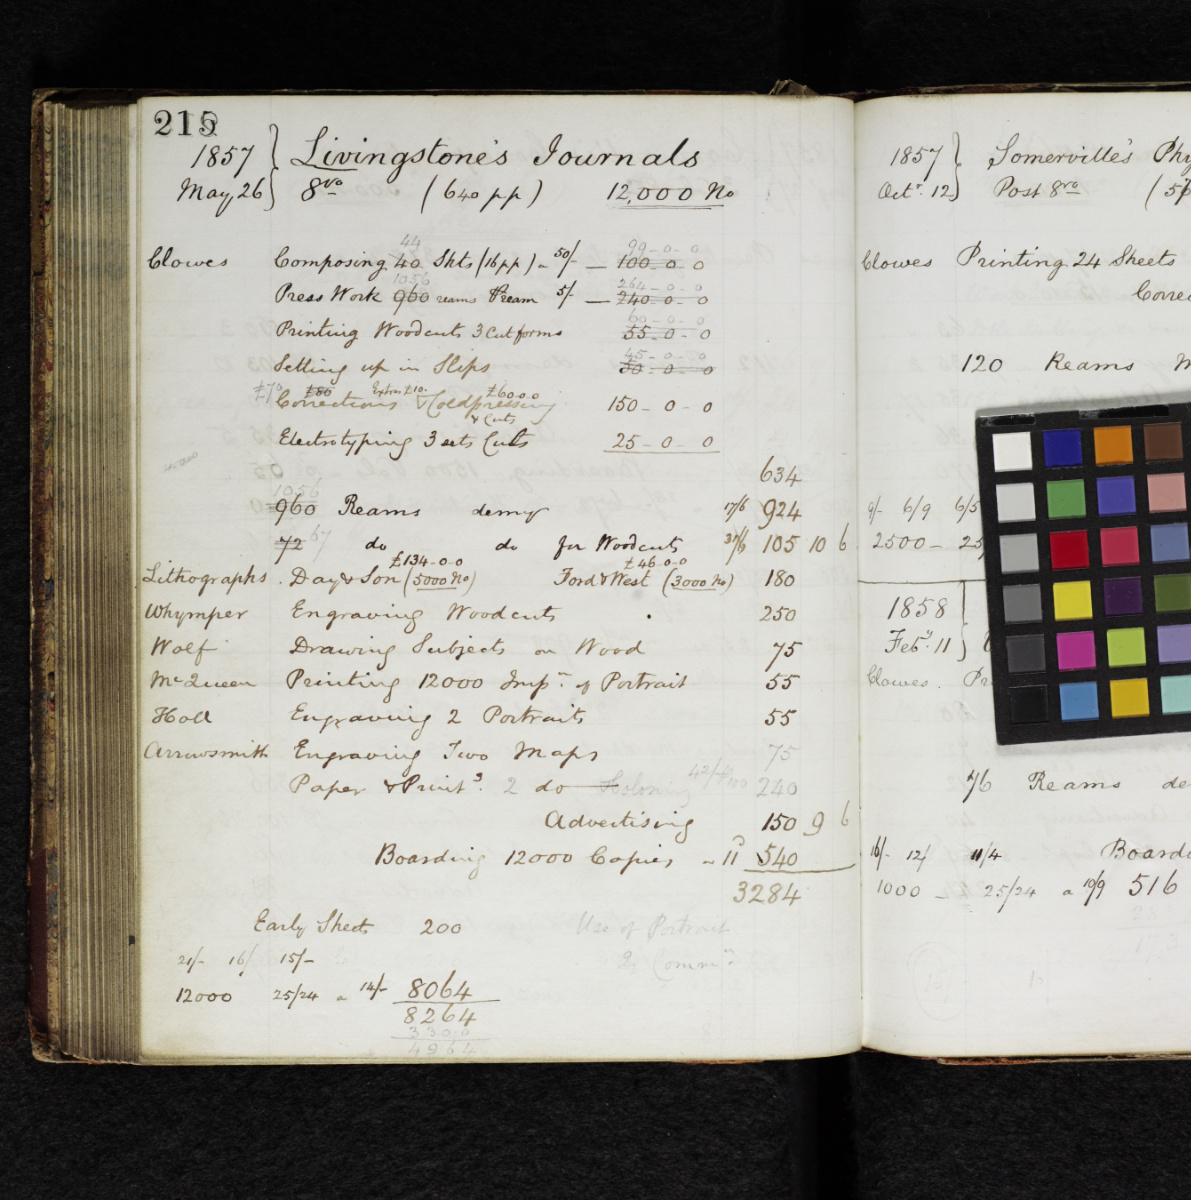 215
1857 } Livingstone's Journals
May 26 } 8vo (640 pp) 12,000 No
44 99-0-0
Clowes Composing 40 Shts (16pp) a 50/- — 100-0-0
1056 264-0-0
Press Work 960 reams Pr ream 5/- — 240-0-0
60-0-0
Printing Woodcuts 3 Cut forms 55-0-0
45-0-0
Setting up in Slips 30-0-0
£70 £80 Extras £10. £60.0.0
Corrections & Coldpressing 150-0-0
& Cuts
Electrotyping 3 sets Cuts 25-0-0
634
1056
960 Reams demy 17/6 924
72 67 do do for Woodcuts 31/6 105 10 6
£134-0-0 £46-0-0
Lithographs. Day & Son (5000 No) Ford & West (3000 No) 180
Whymper Engraving Woodcuts 250
Wolf Drawing Subjects on Wood 75
McQueen Printing 12000 Imps. of Portrait 55
Holl Engraving 2 Portraits 55
Arrowsmith Engraving Two Maps 75
Paper & Print.g 2 do Coloring 42/- 100 240
Advertising 150 9 6
Boarding 12000 Copies a 11 540
3284
Early Sheets 200 Use of Portrait
21/- 16/ 15/-
12000 25/24 a 14/- 8064
8264
3300
4964
1857 } Somerville's Phy
Octr. 12 } Post 8vo (5
Clowes Printing 24 Sheets
Correc
120 Reams
9/- 6/9 6/5
2500 - 25
1858
Feby. 11 }
Clowes. Pr
76 Reams de
16/- 12/ 11/4 Boardi
1000 - 25/24 a 10/9 516